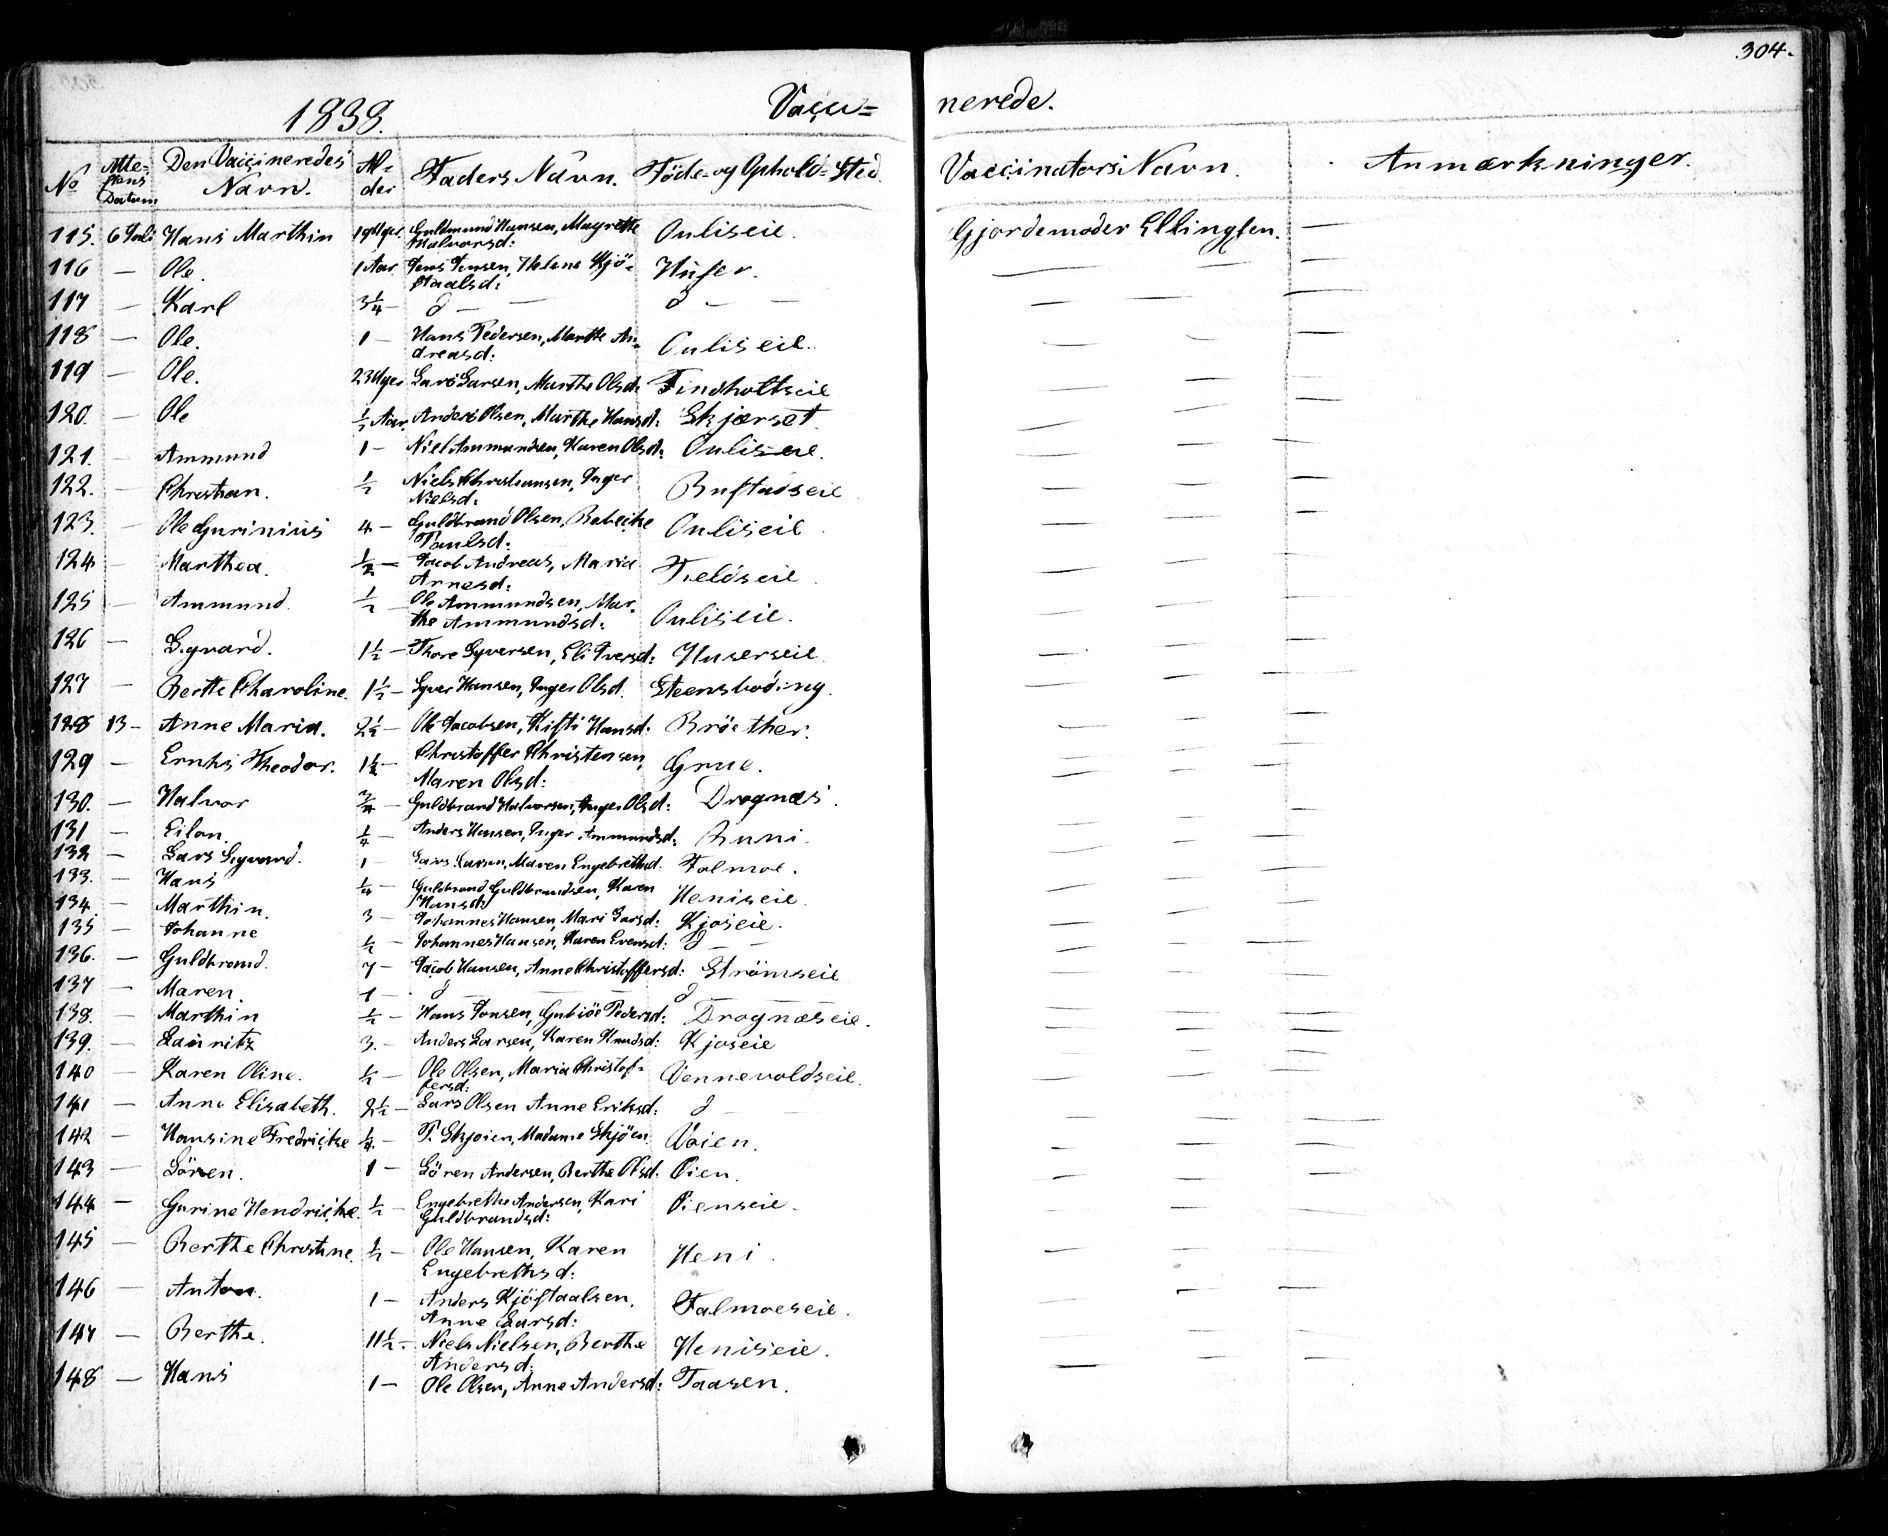 304.
1838. Vacci=
nerede.
No Atte-stens Datum Den Vaccineredes Navn. Al-der Faders Navn. Föde- og Ophold-Sted. Vaccinators Navn. Anmærkninger.
115. 6 Juli Hans Marthin 19 Uger Guldmund Hansen, Magrethe Halvorsd: Ouliseie. Gjordemoder Ellingsen. —
116 — Ole. 1 Aar. Jens Jensen, Helene Kjö-staalsd: Huser. — — —
117 — Karl 3 1/4 — d — — d — — — — —
118 — Ole. 1 — Hans Pedersen, Marthe An-dreasd: Ouliseie. — — —
119 — Ole. 23 Uger Lars Larsen, Marthe Olsd: Findholtseie — — —
120. — Ole 1/2 Aar. Anders Olsen, Marthe Hansd: Skjærset. — — —
121. — Ammund 1 — Niels Ammundsen, Karen Olsd: Ouliseie. — — —
122. — Christian. 1/2 Niels Christiansen, Inger Nielsd: Rustadseie — — —
123. — Ole Gurinius 4 — Guldbrand Olsen, Rebecke Paulsd: Ouliseie — — —
124 — Marthea. 1/2 — Jacob Andreas, Maria Arnesd: Fieldseie. — — —
125 — Ammund. 1/2 — Ole Ammundsen, Mar-the Ammundsd: Ouliseie. — — —
126 — Syvard. 1 1/2 — Thore Syversen, Eli Iversd: Huserseie. — — —
127 — Berthe Charoline. 1 1/2 — Syver Hansen, Inger Olsd. Steensboding. — — —
128 13 — Anne Maria. 2 1/2 — Ole Jacobsen, Kisti Hansd: Bröether. — — —
129 — Ernhs Theodor. 1 1/2 — Christoffer Christensen, Maren Olsd: Grue. — — —
130. — Halvor 3/4 — Guldbrand Halvorsen, Inger Olsd: Drognæs. — — —
131 — Eilon. 1/4 — Anders Hansen, Inger Ammundsd: Runi. — — —
132 — Lars Syvard. 1 — Lars Larsen, Maren Engebrethsd. Folmoe. — — —
133. — Hans 1/4 — Guldbrand Guldbrandsen, Karen Hansd: Heniseie. — — —
134. — Marthin. 3 — Johannes Hansen, Mari Larsd: Kjoseie. — — —
135. — Johanne 1/2 — Johannes Hansen, Karen Evensd: d — — — — —
136. — Guldbrand. 7 — Jacob Hansen, Anne Christoffersd: Strömseie — — —
137 — Maren. 1 — d — — — d — — — — —
138. — Marthin 1/2 — Hans Jonsen, Gubiöe Pedersd: Drognæseie. — — —
139. — Lauritz 3. — Anders Larsen, Karen Knudsd: Kjoseie — — —
140 — Karen Oline. 1/2 — Ole Olsen, Maria Christof-fersd: Vennevoldseie. — — —
141 — Anne Elisabeth. 2 1/2 — Lars Olsen Anne Eriksd: d — — — —
142 — Hansine Fredricke 1/4 — P. Skjoien, Madame Skjöen. Voien. — — —
143 — Sören. 1 — Sören Andersen, Berthe Olsd: Öien. — — —
144 — Gurine Hendricke. 1/2 — Engebrethe Andersen, Kari Guldbrandsd: Öienseie. — — —
145 — Berthe Christine. 1/2 — Ole Hansen, Karen Engebrethsd: Heni. — — —
146 — Anton. 1 — Anders Kjöstaalsen, Anne Larsd: Falmoeseie. — — —
147 — Berthe. 11 1/2. — Niels Nielsen, Berthe Andersd: Heniseie. — — —
148 — Hans 1 — Ole Olsen, Anne Andersd: Taasen. — — —